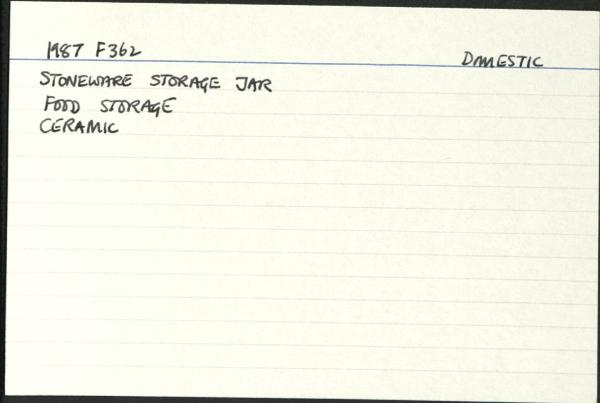 1987 F362 DOMESTIC
STONEWARE STORAGE JAR
FOOD STORAGE
CERAMIC